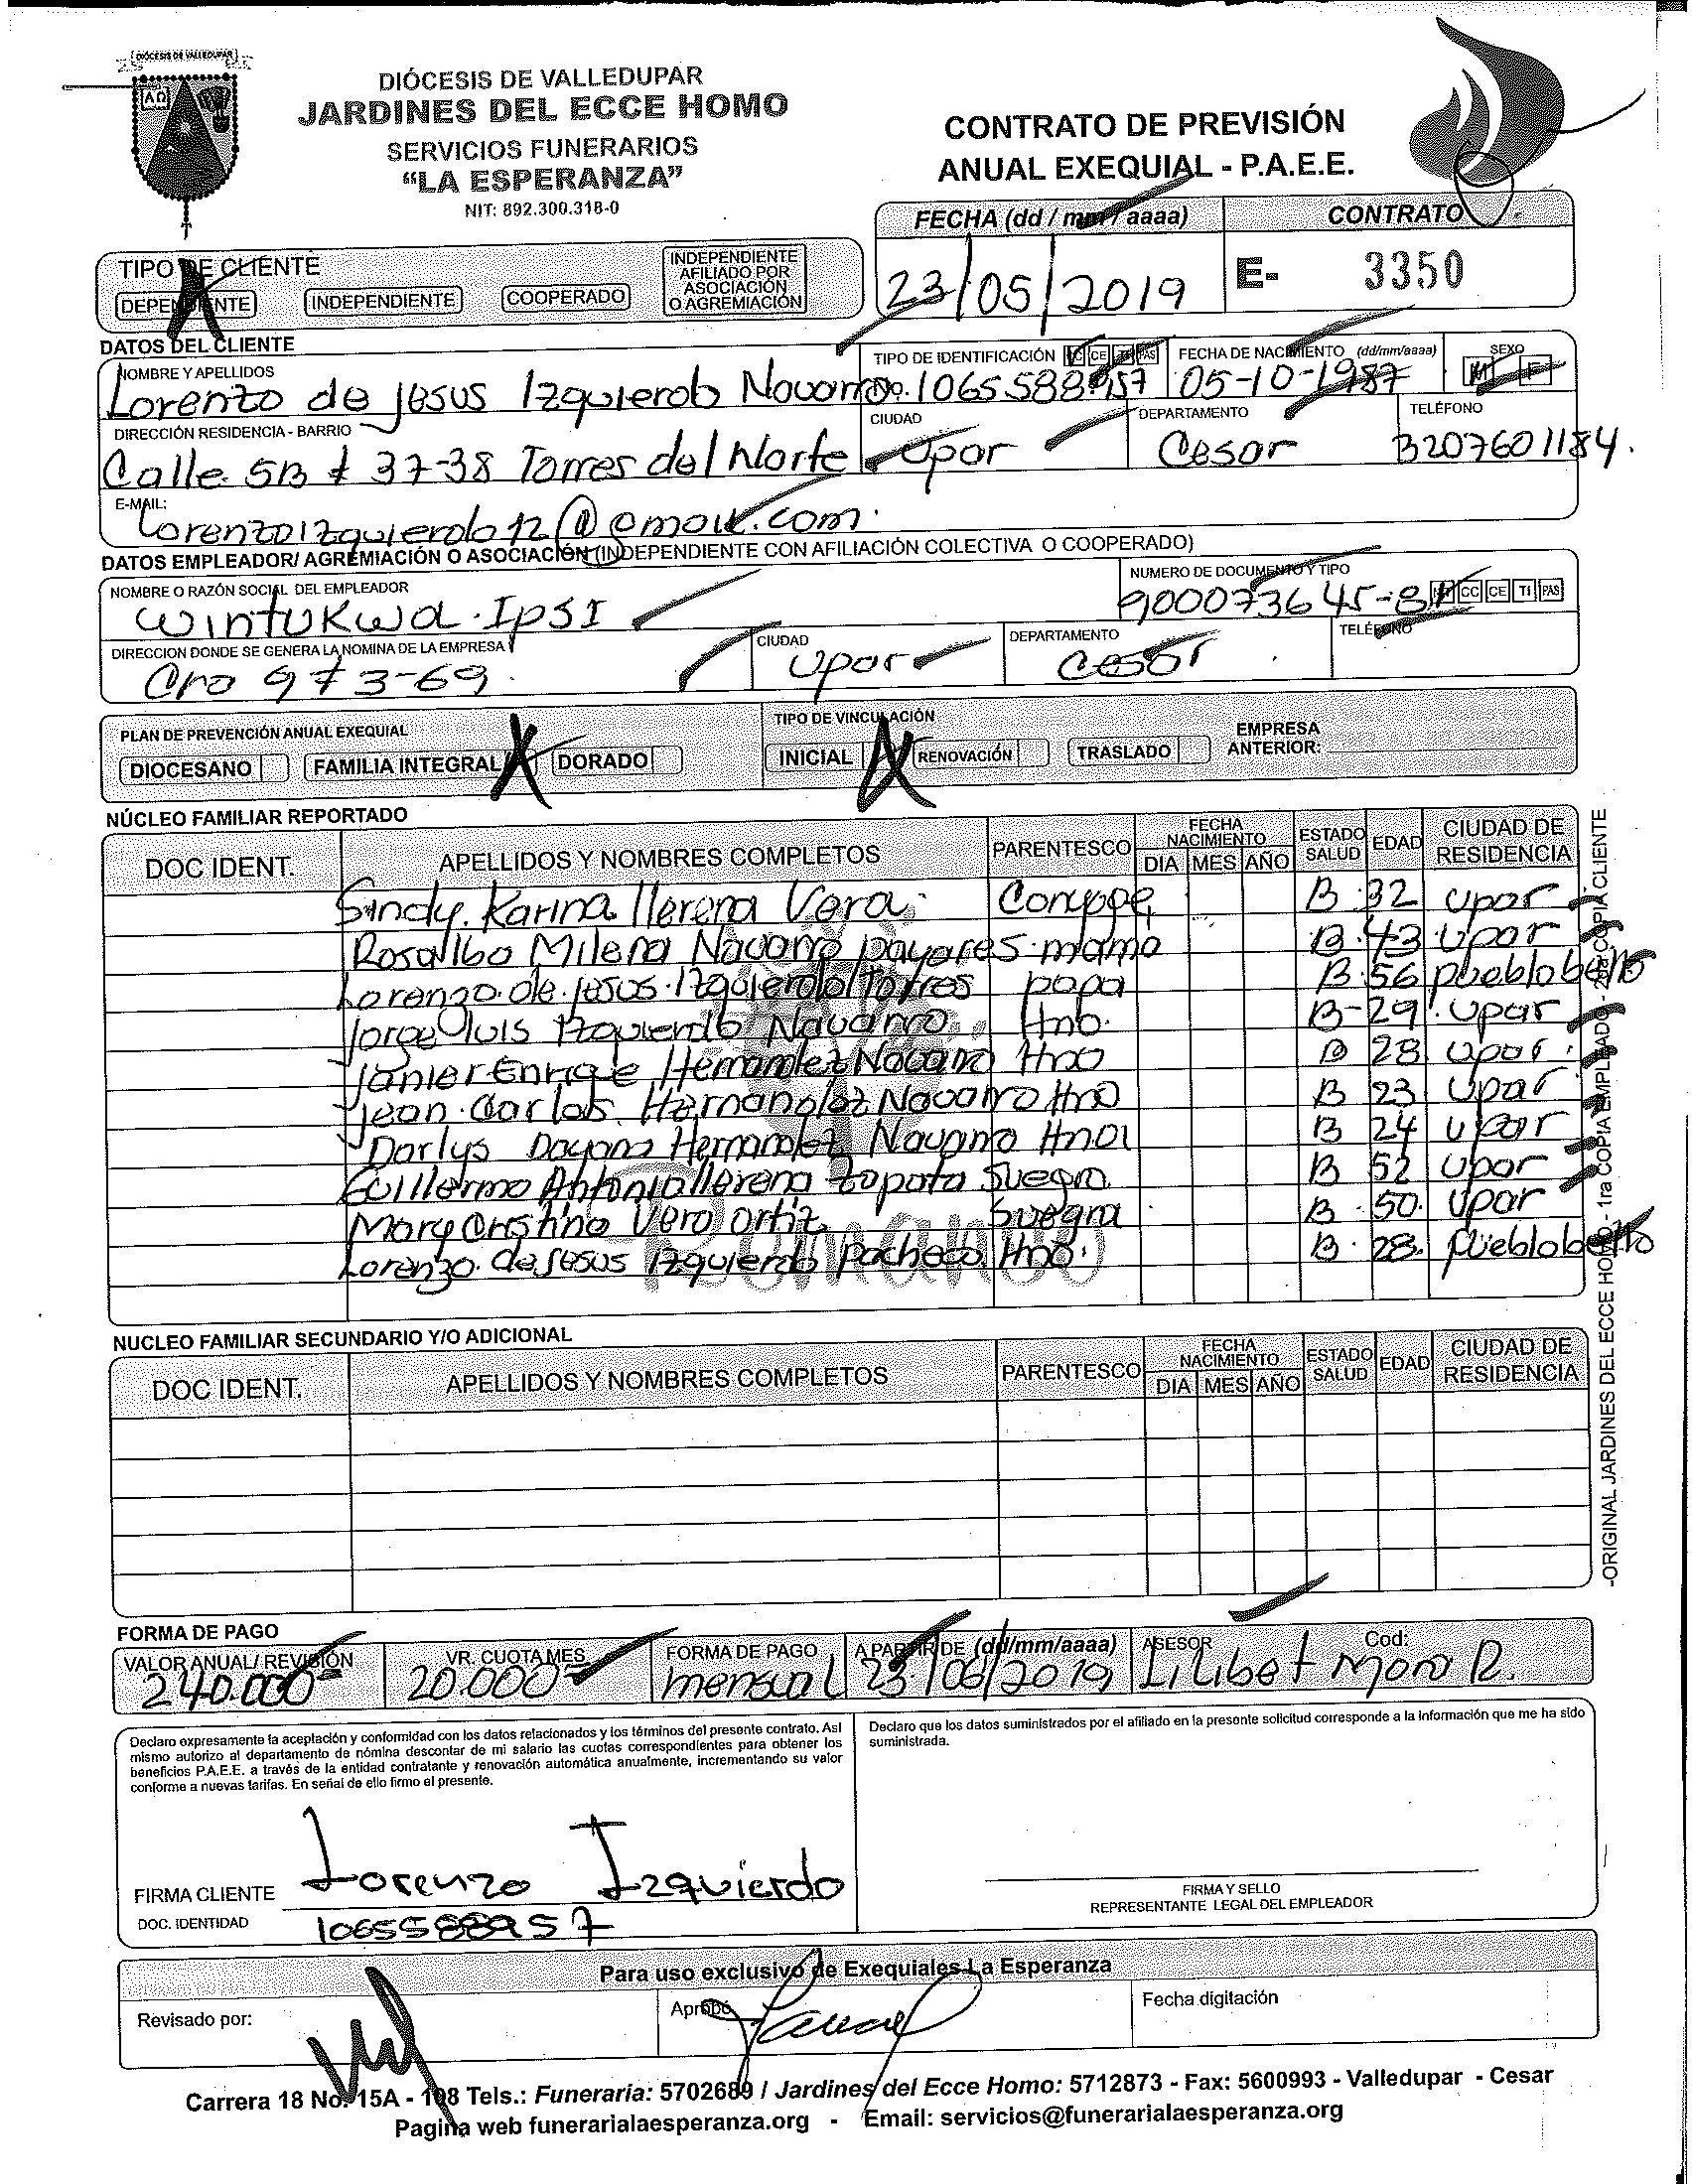 DIÓCESIS DE VALLEDUPAR
DIÓCESIS DE VALLEDUPAR
JARDINES DEL ECCE HOMO
SERVICIOS FUNERARIOS
"LA ESPERANZA"
NIT: 892.300.318-0
CONTRATO DE PREVISIÓN
ANUAL EXEQUIAL - P.A.E.E.
FECHA (dd / mm / aaaa) CONTRATO
23/05/2019 E- 3350
TIPO DE CLIENTE
DEPENDIENTE INDEPENDIENTE COOPERADO INDEPENDIENTE AFILIADO POR ASOCIACIÓN O AGREMIACIÓN
DATOS DEL CLIENTE
NOMBRE Y APELLIDOS TIPO DE IDENTIFICACIÓN CC CE TI PAS FECHA DE NACIMIENTO (dd/mm/aaaa) SEXO M F
Lorenzo de Jesus Izquierdo Navarro No. 1065588957 05-10-1987
DIRECCIÓN RESIDENCIA - BARRIO CIUDAD DEPARTAMENTO TELÉFONO
Calle 5B # 37-38 Torres del Norte Upar Cesar 3207601184.
E-MAIL:
Lorenzoizquierdo12@gmail.com
DATOS EMPLEADOR/ AGREMIACIÓN O ASOCIACIÓN (INDEPENDIENTE CON AFILIACIÓN COLECTIVA O COOPERADO)
NOMBRE O RAZÓN SOCIAL DEL EMPLEADOR NUMERO DE DOCUMENTO Y TIPO
Wintukwa IPSI 900073645-8 CC CE TI PAS
DIRECCION DONDE SE GENERA LA NOMINA DE LA EMPRESA CIUDAD DEPARTAMENTO TELÉFONO
Cra 9 # 3-69 Upar Cesar
PLAN DE PREVENCIÓN ANUAL EXEQUIAL TIPO DE VINCULACIÓN
DIOCESANO FAMILIA INTEGRAL X DORADO INICIAL X RENOVACIÓN TRASLADO EMPRESA ANTERIOR:
NÚCLEO FAMILIAR REPORTADO
DOC IDENT. APELLIDOS Y NOMBRES COMPLETOS PARENTESCO FECHA NACIMIENTO DIA MES AÑO ESTADO SALUD EDAD CIUDAD DE RESIDENCIA
Sindy Karina llerena Vera Conyuge B 32 Upar
Rosalba Milena Navarro payares mama B 43 Upar
Lorenzo de Jesus Izquierdo Torres papa B 56 pueblobello
Jorge luis Izquierdo Navarro Hno. B 29 Upar
Janier Enrique Hernandez Navarro Hno B 28 Upar
Jean Carlos Hernandez Navarro Hno B 23 Upar
Darlys Dayana Hernandez Navarro Hna B 24 Upar
Guillermo Antonio llerena Zapata Suegro B 52 Upar
Mary Cristina Vera Ortiz Suegra B 50 Upar
Lorenzo de Jesus Izquierdo Pacheco Hno. B 28 pueblobello
NUCLEO FAMILIAR SECUNDARIO Y/O ADICIONAL
DOC IDENT. APELLIDOS Y NOMBRES COMPLETOS PARENTESCO FECHA NACIMIENTO DIA MES AÑO ESTADO SALUD EDAD CIUDAD DE RESIDENCIA
-ORIGINAL JARDINES DEL ECCE HOMO - 1ra COPIA EMPLEADO - 2da COPIA CLIENTE
FORMA DE PAGO
VALOR ANUAL/ REVISIÓN VR. CUOTA MES FORMA DE PAGO A PARTIR DE (dd/mm/aaaa) ASESOR Cod:
240.000 20.000 mensual 23/06/2019 Lilibet Mora R.
Declaro expresamente la aceptación y conformidad con los datos relacionados y los términos del presente contrato. Así
mismo autorizo al departamento de nómina descontar de mi salario las cuotas correspondientes para obtener los
beneficios P.A.E.E. a través de la entidad contratante y renovación automática anualmente, incrementando su valor
conforme a nuevas tarifas. En señal de ello firmo el presente.
Declaro que los datos suministrados por el afiliado en la presente solicitud corresponde a la información que me ha sido
suministrada.
FIRMA CLIENTE Lorenzo Izquierdo
DOC. IDENTIDAD 1065588957
FIRMA Y SELLO
REPRESENTANTE LEGAL DEL EMPLEADOR
Para uso exclusivo de Exequiales La Esperanza
Revisado por: Aprobó Fecha digitación
Carrera 18 No. 15A - 108 Tels.: Funeraria: 5702689 / Jardines del Ecce Homo: 5712873 - Fax: 5600993 - Valledupar - Cesar
Pagina web funerarialaesperanza.org - Email: servicios@funerarialaesperanza.org